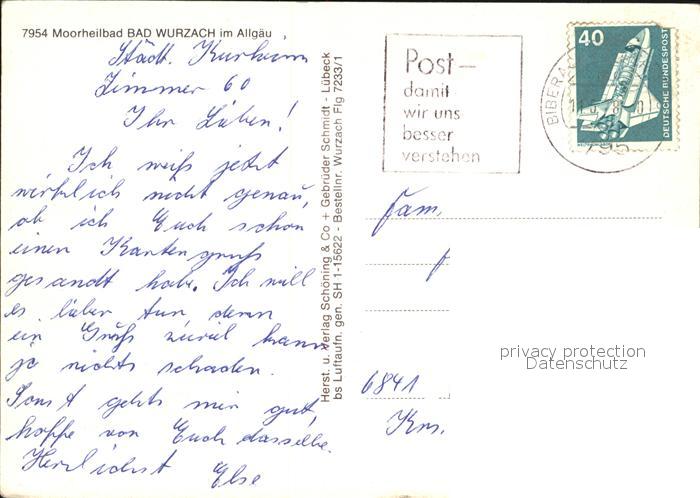 7954 Moorheilbad BAD WURZACH im Allgäu
Städt. Kurheim
Zimmer 60
Ihr Lieben!
Ich weiß jetzt
wirklich nicht genau,
ob ich Euch schon
einen Kartengruß
gesandt habe. Ich will
es lieber tun denn
ein Gruß zuviel kann
ja nichts schaden.
Sonst gehts mir gut,
hoffe von Euch dasselbe.
Herzlichst Else
Herst. u. Verlag Schöning & Co + Gebrüder Schmidt - Lübeck
bs Luftaufn. gen. SH 1-15622 - Bestellnr. Wurzach Flg 7233/1
Post–
damit
wir uns
besser
verstehen
BIBERA
795
40
DEUTSCHE BUNDESPOST
Fam.
6841
privacy protection
Datenschutz